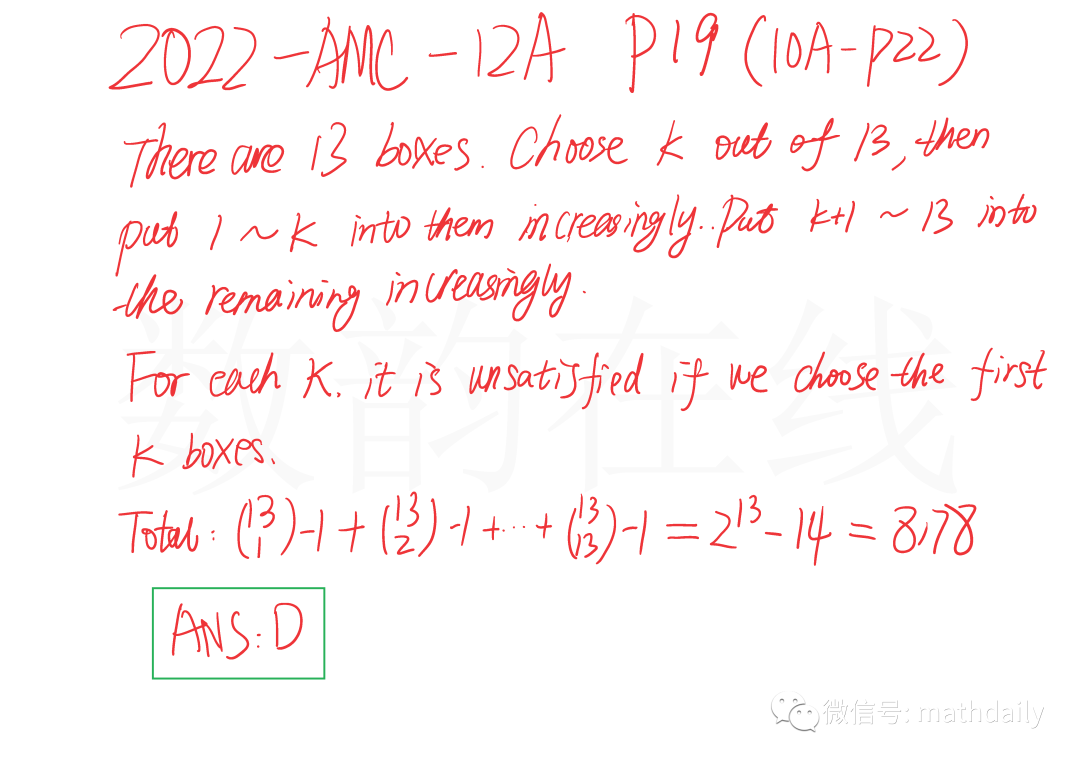 2022-AMC-12A P19 (10A-P22)
There are 13 boxes. Choose k out of 13, then
put 1 ~ k into them increasingly. Put k+1 ~ 13 into
the remaining increasingly.
For each k, it is unsatisfied if we choose the first
k boxes.
Total: (13 1) -1 + (13 2) -1 + ... + (13 13) -1 = 2^13 - 14 = 8178
ANS: D
数韵在线
微信号: mathdaily